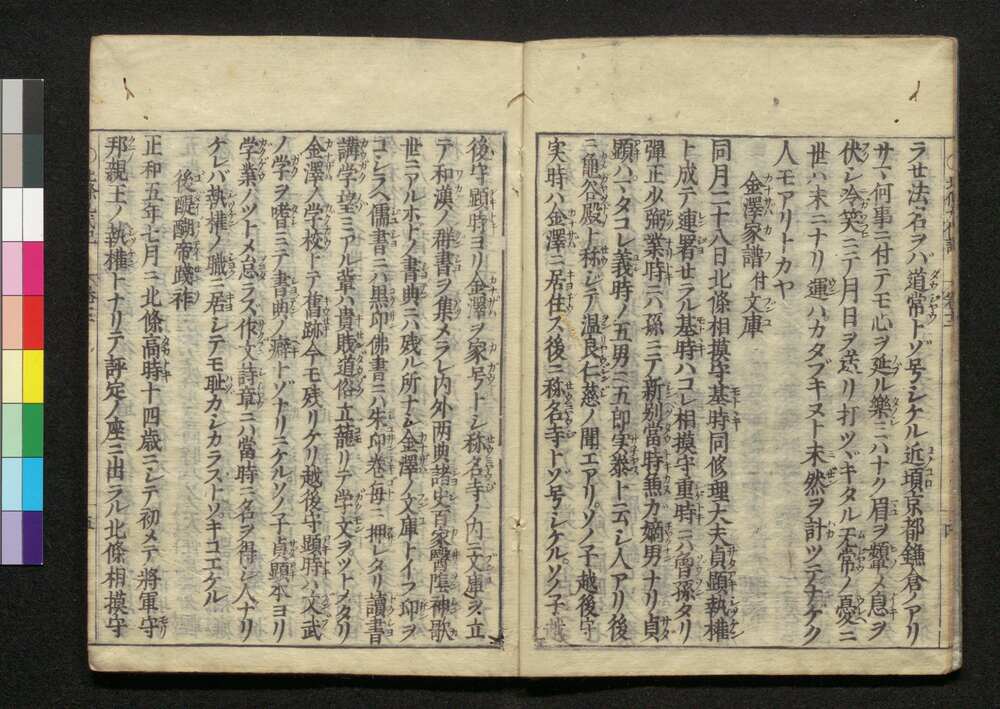 ラセ法名ヲバ道常トゾ号シケル近頃京都鎌倉ノアリ
サマ何事ニ付テモ心ヲ延ル樂ミハナク眉ヲ顰メ息ヲ
伏シ冷笑ミテ月日ヲ送リ打ツヾキタル天常ノ憂ニ
世ハ末ニナリ運ハカタブキヌト未然ヲ計ツテナゲク
人モアリトカヤ
金澤家譜付文庫
同月二十八日北條相摸守基時同修理大夫貞顕執權
ト成テ連署セラル基時ハコレ相摸守重時ニハ曽孫タリ
弾正少弼業時ニハ孫ニテ新別當時兼カ嫡男ナリ貞
顕ハマタコレ義時ノ五男ニ五郎実泰ト云シ人アリ後
ニ亀谷殿ト称シテ温良仁慈ノ聞エアリソノ子越後守
実時ハ金澤ニ居住ス後ニ称名寺トゾ号シケルソノ子越
後守顕時ヨリ金澤ヲ家号トシ称名寺ノ内ニ文庫ヲ立
テ和漢ノ群書ヲ集メラレ内外両典諸史百家醫陰神歌
世ニアルホドノ書典ニハ残ル所ナシ金澤ノ文庫トイフ印ヲ
コシラヘ儒書ニハ黒印佛書ニハ朱印巻毎ニ押レタリ讀書
講学望ミアル輩ハ貴賎道俗立籠リテ学文ヲツトメタリ
金澤ノ学校トテ舊跡今モ残リケリ越後守顕時ハ文武
ノ学ヲ嗜ミテ書典ノ癖トゾナリニケルソノ子貞顕本ヨリ
学業ハツトメ怠ラズ作文詩章ニハ當時ニ名ヲ得シ人ナリ
ケレバ執權ノ職ニ居シテモ耻カシカラストソキコエケル
後醍醐帝踐祚
正和五年七月ニ北條高時十四歳ニシテ初メテ將軍守
邦親王ノ執權トナリテ評定ノ座ニ出ラル北條相摸守